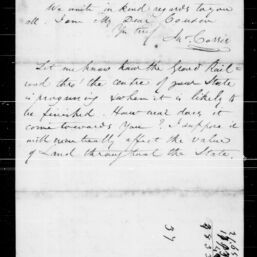 We unite in kind regards to you
all. I am My Dear Cousin
Yrs truly
Let me know how the Grand Trail-
road thro' the centre of your State
is progressing & when it is likely to
be finished. How near does it
come towards You? I suppose it
will eventually affect the value
of Land throughout the State.
37